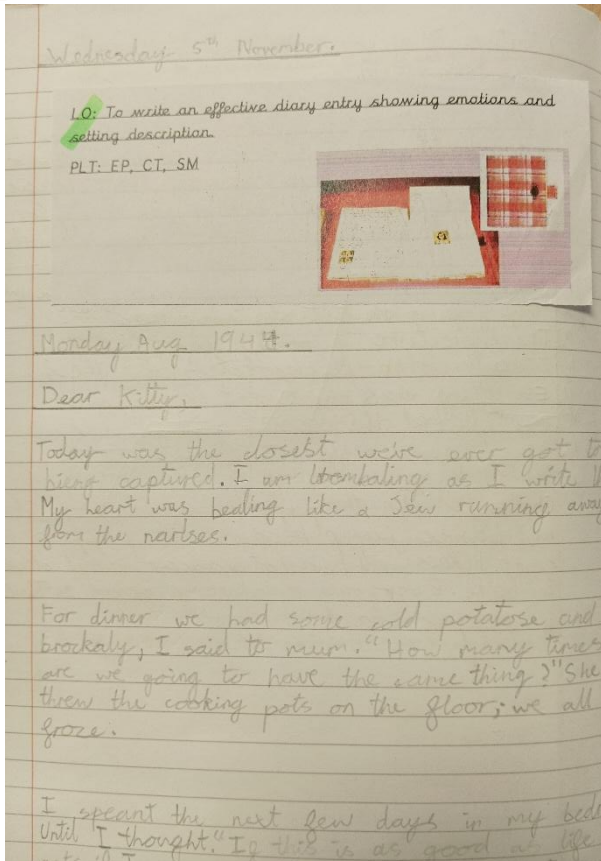 Wednesday 5th November.
LO: To write an effective diary entry showing emotions and
setting description
PLT: EP, CT, SM
Monday Aug 1944.
Dear Kitty,
Today was the closest we've ever got to
bieng captured. I am trembaling as I write
My heart was beating like a Jew running away
from the nartses.
For dinner we had some cold potatorse and
brockaly, I said to mum. "How many times
are we going to have the same thing?" She
threw the cooking pots on the floor; we all
froze.
I speant the next few days in my
Until I thought. "If this is as good a life